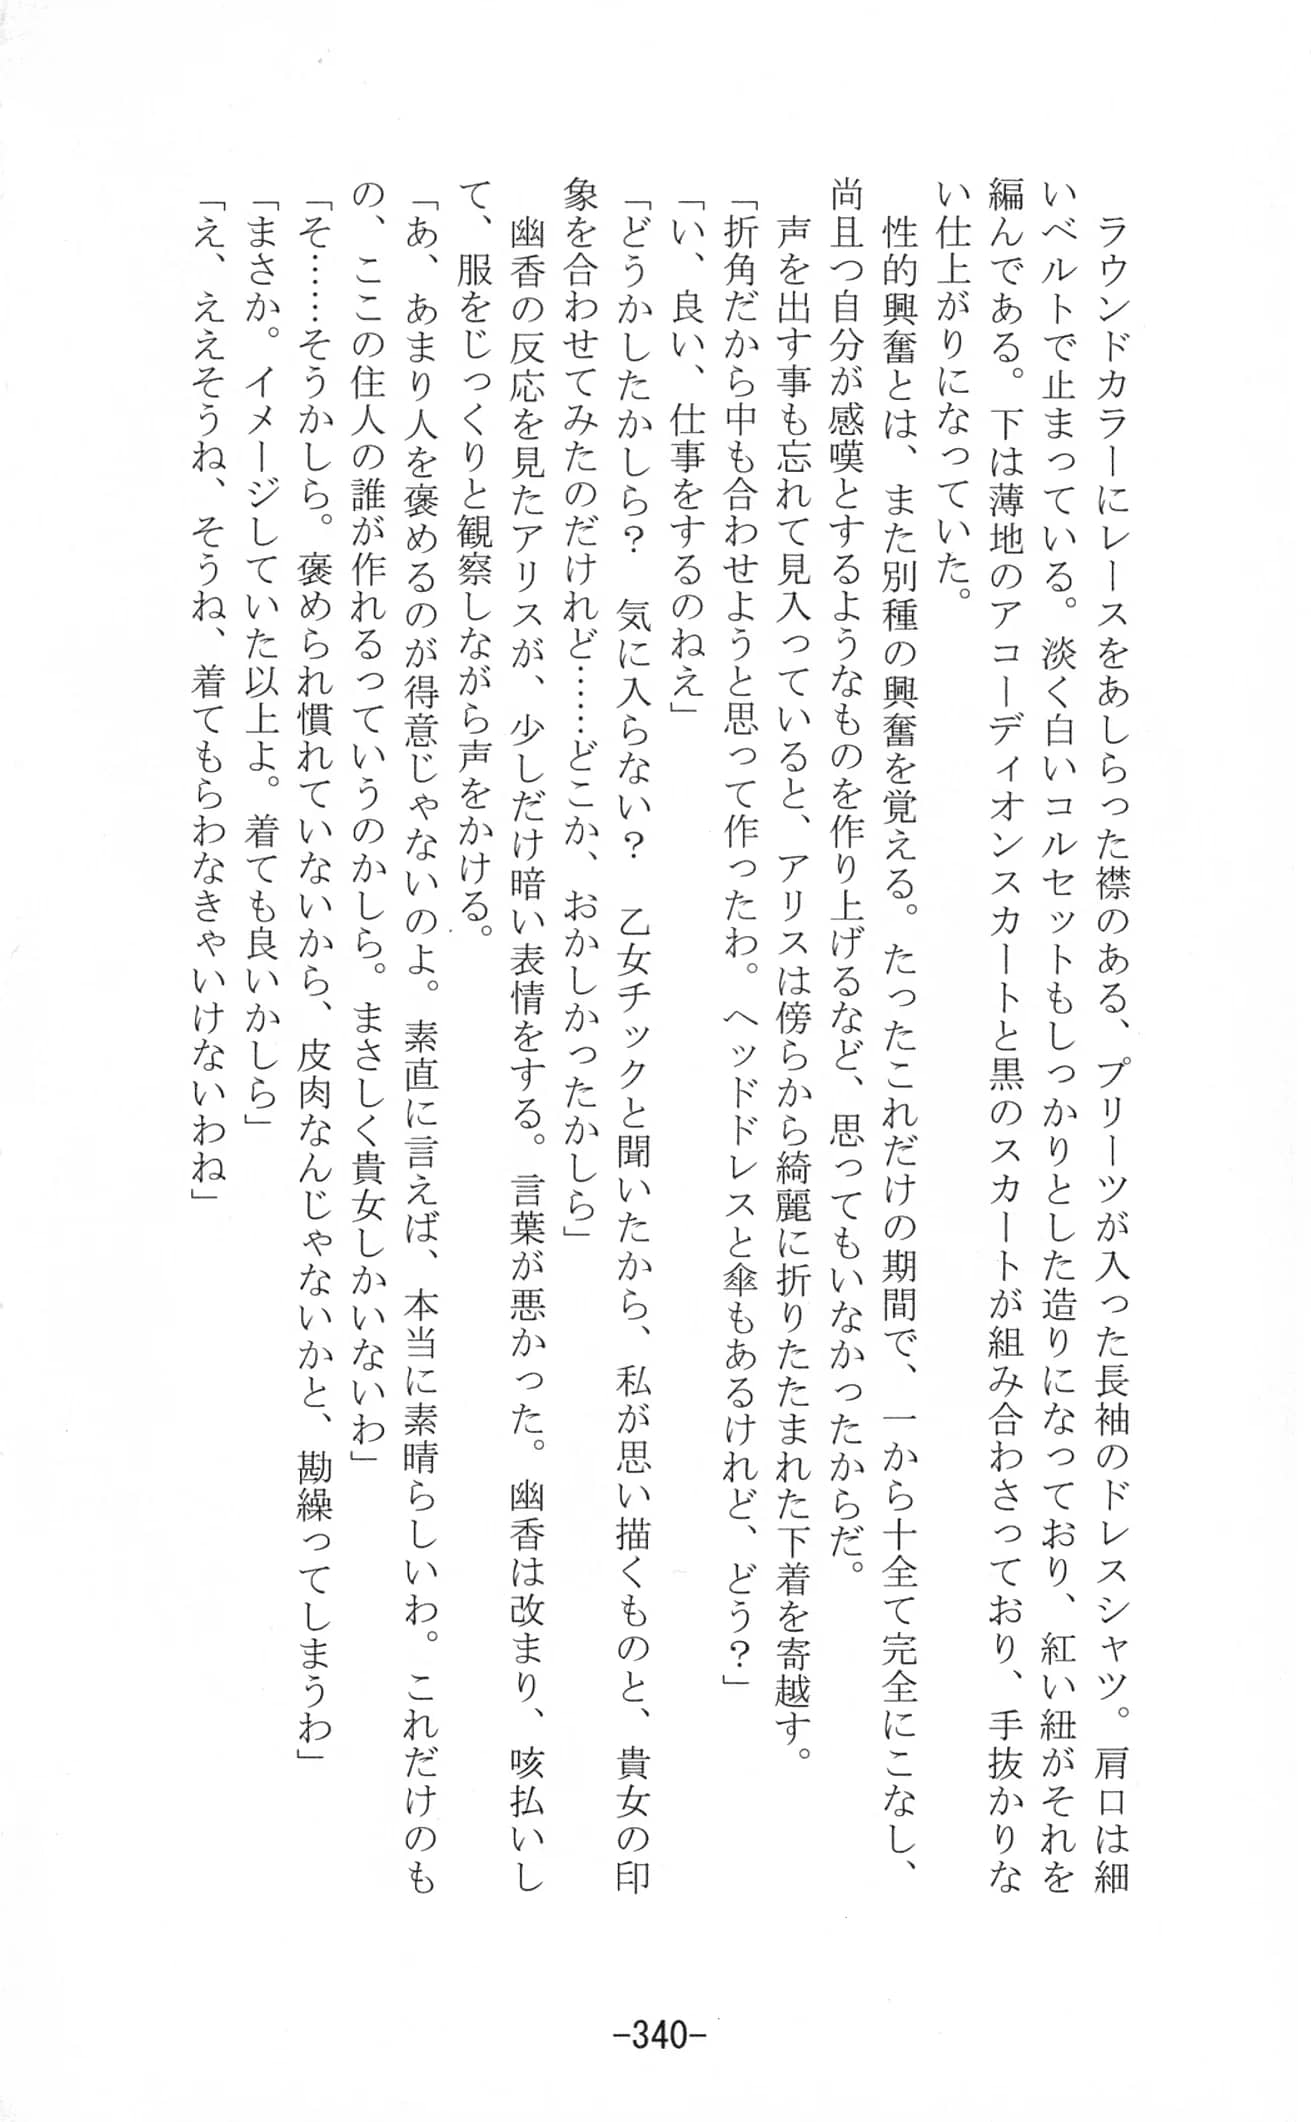 ラウンドカラーにレースをあしらった襟のある、プリーツが入った長袖のドレスシャツ。肩口は細
いベルトで止まっている。淡く白いコルセットもしっかりとした造りになっており、紅い紐がそれを
編んである。下は薄地のアコーディオンスカートと黒のスカートが組み合わさっており、手抜かりな
い仕上がりになっていた。
　性的興奮とは、また別種の興奮を覚える。たったこれだけの期間で、一から十全て完全にこなし、
尚且つ自分が感嘆とするようなものを作り上げるなど、思ってもいなかったからだ。
　声を出す事も忘れて見入っていると、アリスは傍らから綺麗に折りたたまれた下着を寄越す。
「折角だから中も合わせようと思って作ったわ。ヘッドドレスと傘もあるけれど、どう？」
「い、良い、仕事をするのねえ」
「どうかしたかしら？　気に入らない？　乙女チックと聞いたから、私が思い描くものと、貴女の印
象を合わせてみたのだけれど……どこか、おかしかったかしら」
　幽香の反応を見たアリスが、少しだけ暗い表情をする。言葉が悪かった。幽香は改まり、咳払いし
て、服をじっくりと観察しながら声をかける。
「あ、あまり人を褒めるのが得意じゃないのよ。素直に言えば、本当に素晴らしいわ。これだけのも
の、ここの住人の誰が作れるっていうのかしら。まさしく貴女しかいないわ」
「そ……そうかしら。褒められ慣れていないから、皮肉なんじゃないかと、勘繰ってしまうわ」
「まさか。イメージしていた以上よ。着ても良いかしら」
「え、ええそうね、そうね、着てもらわなきゃいけないわね」
-340-